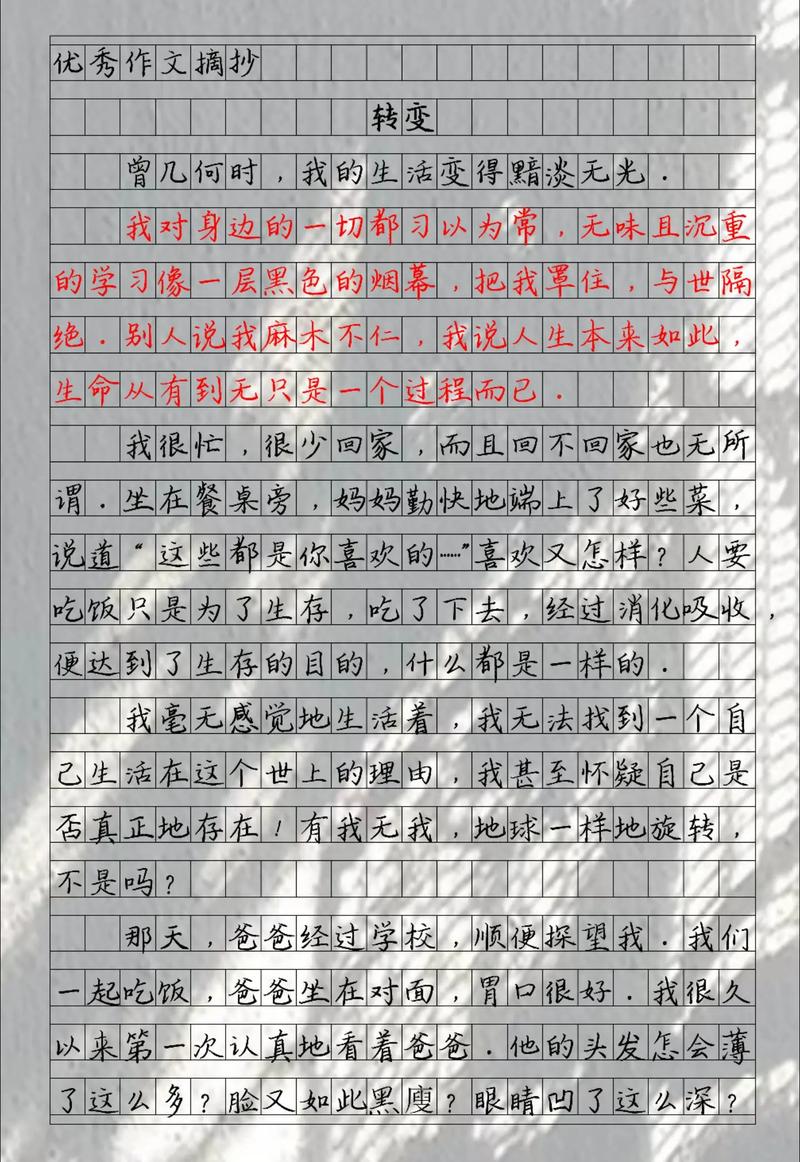 优秀作文摘抄
转变
曾几何时，我的生活变得黯淡无光．
我对身边的一切都习以为常，无味且沉重
的学习像一层黑色的烟幕，把我罩住，与世隔
绝．别人说我麻木不仁，我说人生本来如此，
生命从有到无只是一个过程而已．
我很忙，很少回家，而且回不回家也无所
谓．坐在餐桌旁，妈妈勤快地端上了好些菜，
说道“这些都是你喜欢的……”喜欢又怎样？人要
吃饭只是为了生存，吃了下去，经过消化吸收，
便达到了生存的目的，什么都是一样的．
我毫无感觉地生活着，我无法找到一个自
己生活在这个世上的理由，我甚至怀疑自己是
否真正地存在！有我无我，地球一样地旋转，
不是吗？
那天，爸爸经过学校，顺便探望我．我们
一起吃饭，爸爸坐在对面，胃口很好．我很久
以来第一次认真地看着爸爸．他的头发怎会薄
了这么多？脸又如此黑廋？眼睛凹了这么深？